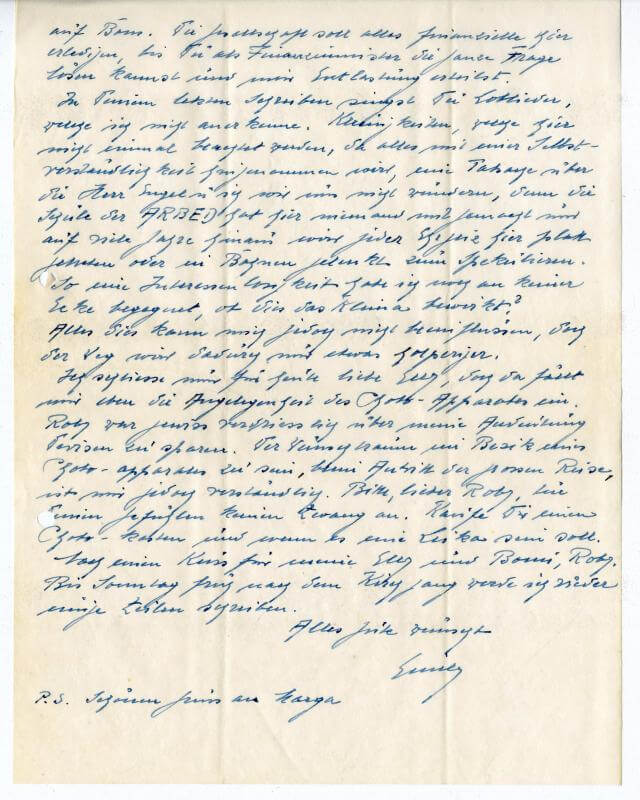 auf Böm. Die Gesellschaft soll alles finanzielle hier
erledigen, bis Du als Finanzminister die ganze Frage
lösen kannst und mir Entlastung erteilst.
In Deinem letzten Schreiben singst Du Loblieder,
welche ich nicht anerkenne. Kleinigkeiten, welche hier
nicht einmal beachtet werden, da alles mit einer Selbst-
verständlichkeit hingenommen wird, eine Tatsache über
die Herr Engel u ich wir uns nicht wundern, denn die
Schule der ARBED hat hier niemand mitgemacht und
auf viele Jahre hinaus wird jeder hier platt
getreten oder in Bahnen gelenkt zum Spekulieren.
So eine Interessenlosigkeit habe ich noch an keiner
Ecke begegnet, ob dies das Klima bewirkt?
Alles dies kann mich jedoch nicht beeinflussen, doch
der Weg wird dadurch nur etwas holperiger.
Ich schliesse nun für heute liebe Elly, doch da fällt
mir eben die Angelegenheit des Photo-Apparates ein.
Roby war gewiss verdriesslich über meine Andeutung
Devisen zu sparen. Der Wunschtraum im Besitz eines
Photo-apparates zu sein, beim Antritt der grossen Reise,
ist mir jedoch verständlich. Bitte, lieber Roby, tue
Deinen Gefühlen keinen Zwang an. Kaufe Dir einen
Photo-kasten und wenn es eine Leika sein soll.
Noch einen Kuss für meine Elly und Roby.
Bis Sonntag früh nach dem Kirchgang werde ich wieder
einige Zeilen schreiben.
Alles gute wünscht
P.S. Schönen Gruss an Marga